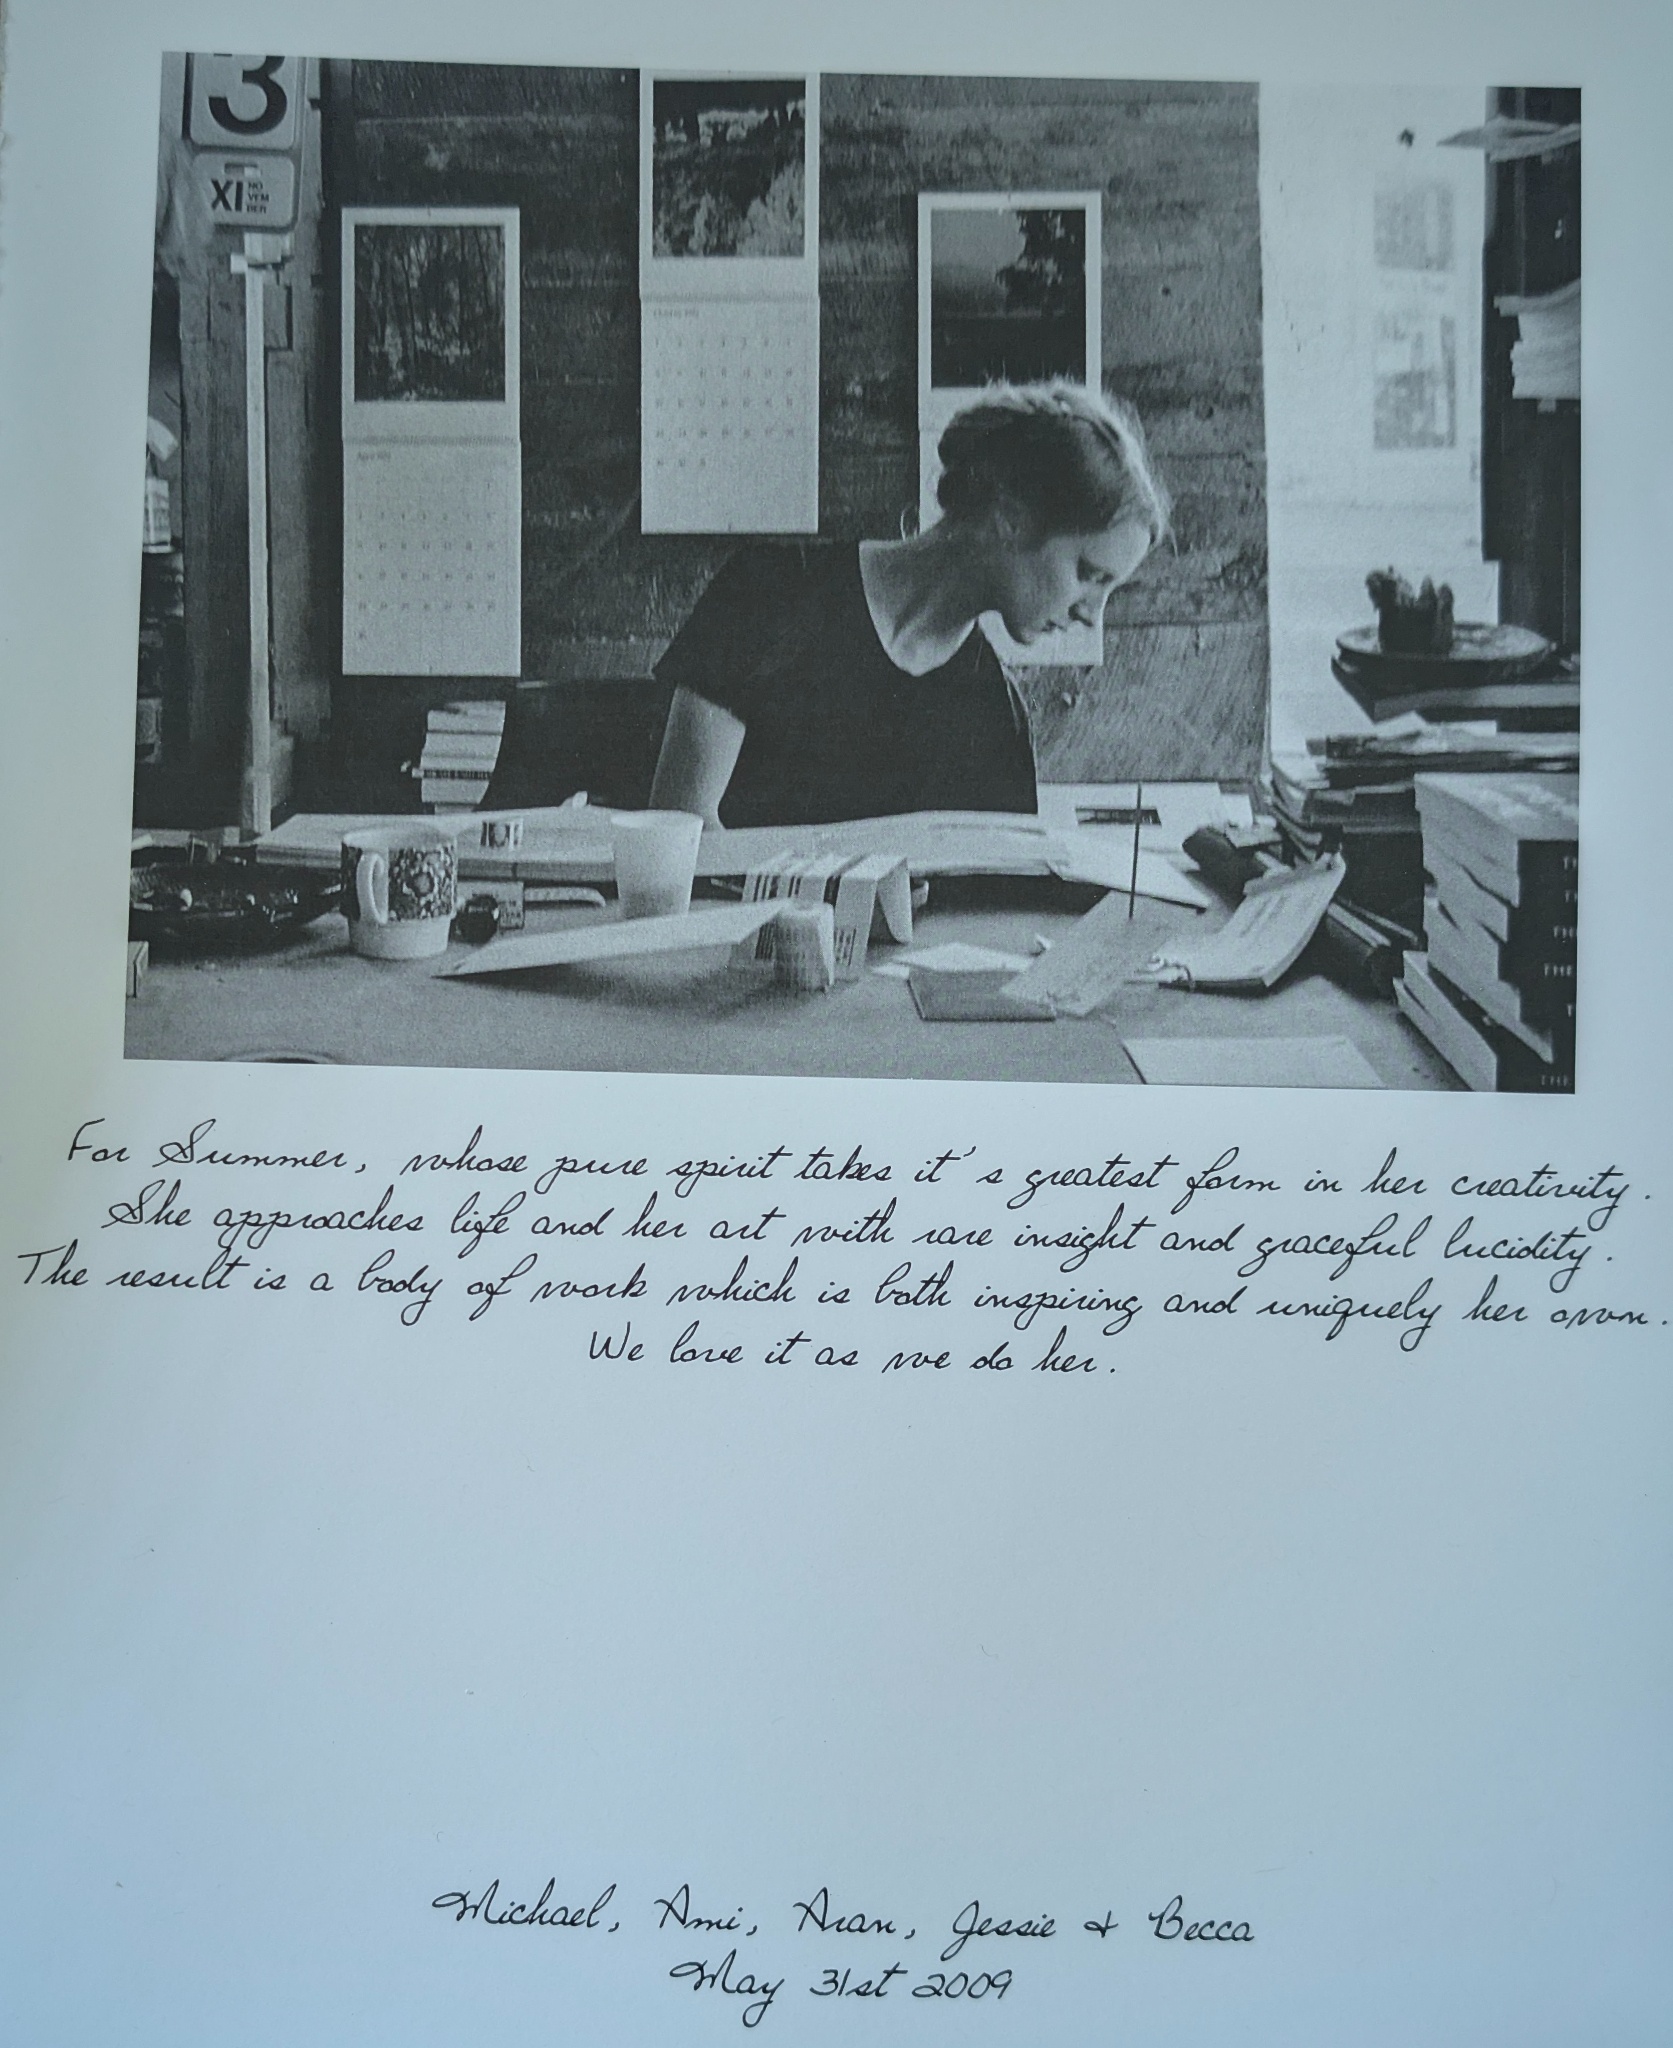 3
XI NO
VEM
BER
THE
THE
For Summer, whose pure spirit takes it's greatest form in her creativity.
She approaches life and her art with rare insight and graceful lucidity.
The result is a body of work which is both inspiring and uniquely her own.
We love it as we do her.
Michael, Ami, Aran, Jessie & Becca
May 31st 2009